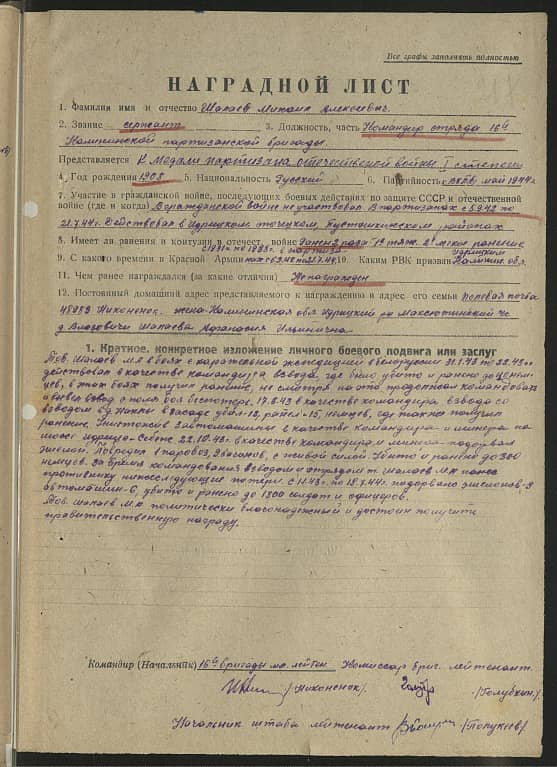 Все графы заполнять полностью
НАГРАДНОЙ ЛИСТ
1. Фамилия имя и отчество Шалаев Михаил Алексеевич.
2. Звание сержант 3. Должность, часть Командир отряда 16й
Калининской партизанской бригады.
Представляется К медали партизана отечественной войны I степени
4. Год рождения 1908 5. Национальность Русский 6. Партийность май 1944г
7. Участие в гражданской войне, последующих боевых действиях по защите СССР и отечественной
войне (где и когда) В гражданской войне не участвовал. В партизанах с по
Действовал в Идрицком, Пустошкинском районах
8. Имеет ли ранения и контузии в отечест. войне Ранен 2 раза ранение
9. С какого времени в Красной Армии 10. Каким РВК призван Идрицким Калинин обл.
11. Чем ранее награждался (за какие отличия) Не награжден
12. Постоянный домашний адрес представляемого к награждению и адрес его семьи полевая почта
Никоненок. жена Калининская обл Идрицкий р-н
д. Шалаева Ильинична
1. Краткое, конкретное изложение личного боевого подвига или заслуг
Тов. Шалаев М.А в боях с карательной экспедицией в Белоруссии
действовал в качестве командира взвода, где было убито и ранено
в этих боях получил ранение, не смотря на это продолжал командовать
и вывел взвод с поля боя без потерь. 17.8.43 в качестве командира взвода со
взводом у д. в засаде убил-12, ранил-15, немцев, где также получил
ранение. Уничтожив 3 автомашины в качестве командира и минера на
шоссе Идрица-Себеж 22.10.43. в качестве командира и минера подорвал
эшелон. Повредил 1 паровоз, вагонов, с живой силой. Убито и ранено до 300
немцев. За время командования взводом и отрядом т. Шалаев М.А нанес
противнику нижеследующие потери. С по подорвано эшелонов
автомашин-6, убито и ранено до 1300 солдат и офицеров.
Тов. Шалаев М.А политически благонадежный и достоин получить
правительственную награду.
Командир (Начальник) 16й бригады мл. лейтен. Комиссар бриг. лейтенант.
/Никоненок/ /Голубкин/
Начальник штаба лейтенант